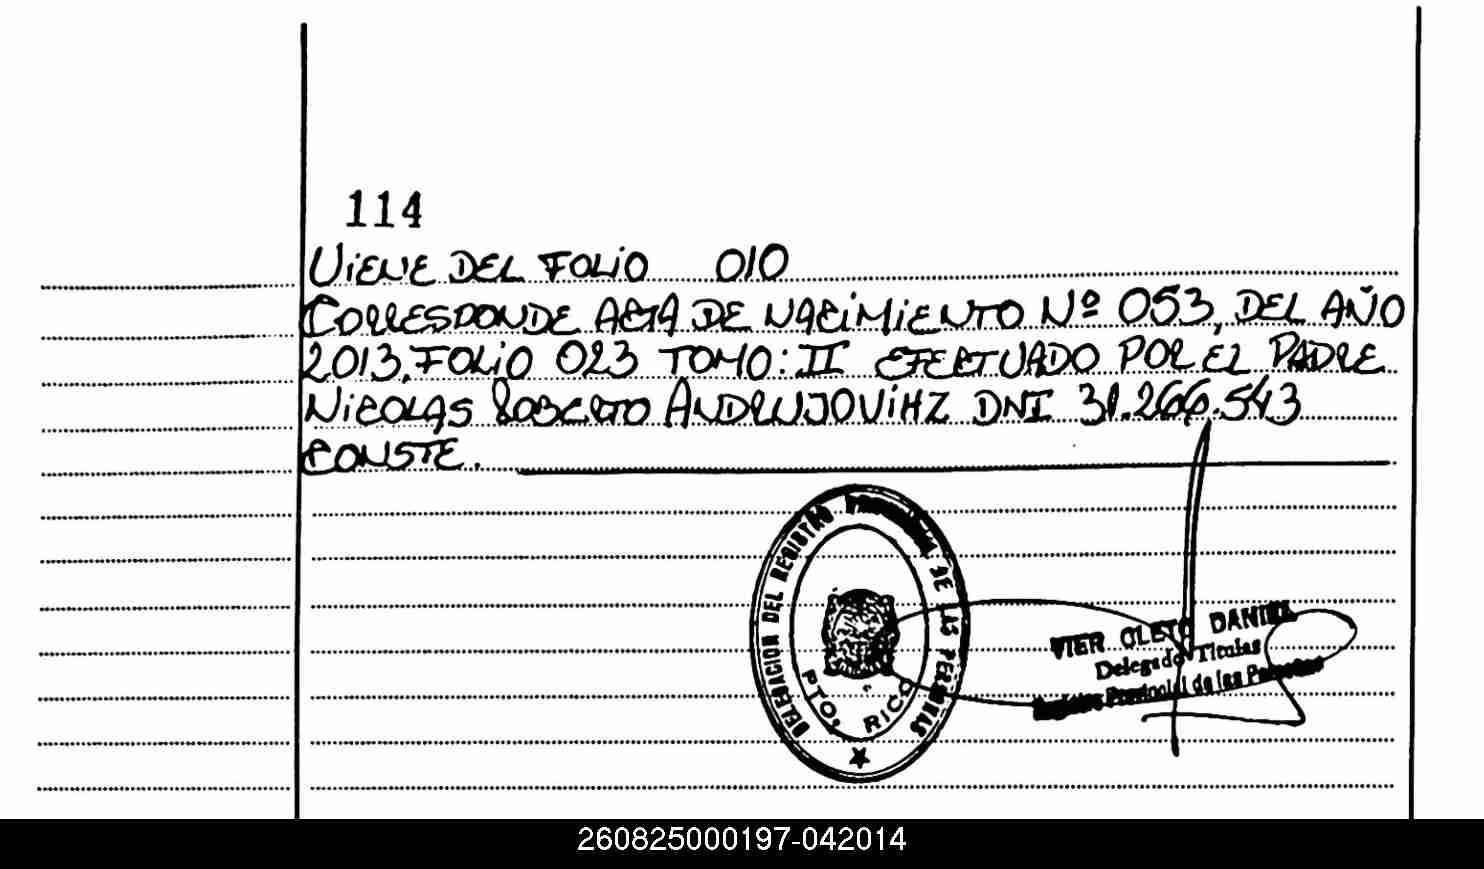 114
VIENE DEL FOLIO 010
CORRESPONDE ACTA DE NACIMIENTO Nº 053, DEL AÑO
2013, FOLIO 023 TOMO: II EFECTUADO POR EL PADRE
NICOLAS ROBERTO ANDRUJOVIHZ DNI 31.266.543
CONSTE.
DELEGACION DEL REGISTRO PROVINCIAL DE LAS PERSONAS
PTO. RICO
VIER CLETO DANIEL
Delegado Titular
Registro Provincial de las Personas
260825000197-042014